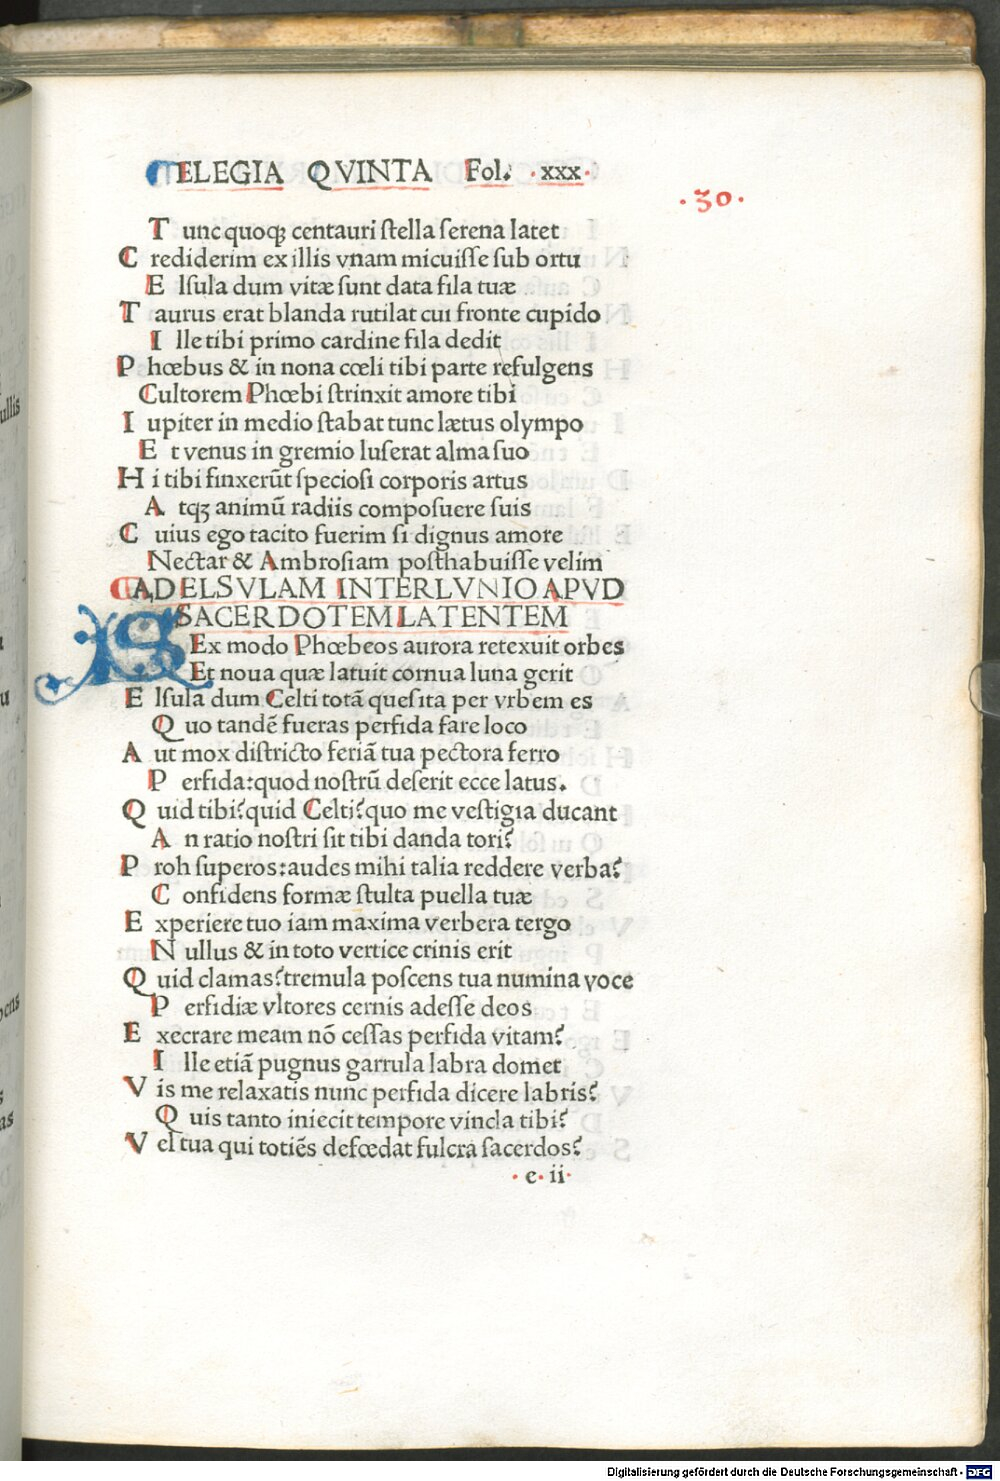 ELEGIA QVINTA Fol. ·xxx·
·30·
Tunc quoqꝫ centauri ſtella ſerena latet
Crediderim ex illis vnam micuiſſe ſub ortu
Elſula dum vitæ ſunt data fila tuæ
Taurus erat blanda rutilat cui fronte cupido
Ille tibi primo cardine fila dedit
Phœbus & in nona cœli tibi parte refulgens
Cultorem Phœbi ſtrinxit amore tibi
Iupiter in medio ſtabat tunc lætus olympo
Et venus in gremio luſerat alma ſuo
Hi tibi finxerūt ſpecioſi corporis artus
Atqꝫ animū radiis compoſuere ſuis
Cuius ego tacito fuerim ſi dignus amore
Nectar & Ambroſiam poſthabuiſſe velim
AD ELSVLAM INTERLVNIO APVD
SACERDOTEM LATENTEM
SEx modo Phœbeos aurora retexuit orbes
Et noua quæ latuit cornua luna gerit
Elſula dum Celti totā queſita per vrbem es
Quo tandē fueras perfida fare loco
Aut mox diſtricto feriā tua pectora ferro
Perfida:quod noſtrū deſerit ecce latus.
Quid tibi?quid Celti?quo me veſtigia ducant
An ratio noſtri ſit tibi danda tori?
Proh ſuperos:audes mihi talia reddere verba?
Confidens formæ ſtulta puella tuæ
Experiere tuo iam maxima verbera tergo
Nullus & in toto vertice crinis erit
Quid clamas?tremula poſcens tua numina voce
Perfidiæ vltores cernis adeſſe deos
Execrare meam nō ceſſas perfida vitam?
Ille etiā pugnus garrula labra domet
Vis me relaxatis nunc perfida dicere labris?
Quis tanto iniecit tempore vincla tibi?
Vel tua qui totiēs defœdat fulcra ſacerdos?
·e·ii·
Digitalisierung gefördert durch die Deutsche Forschungsgemeinschaft - DFG